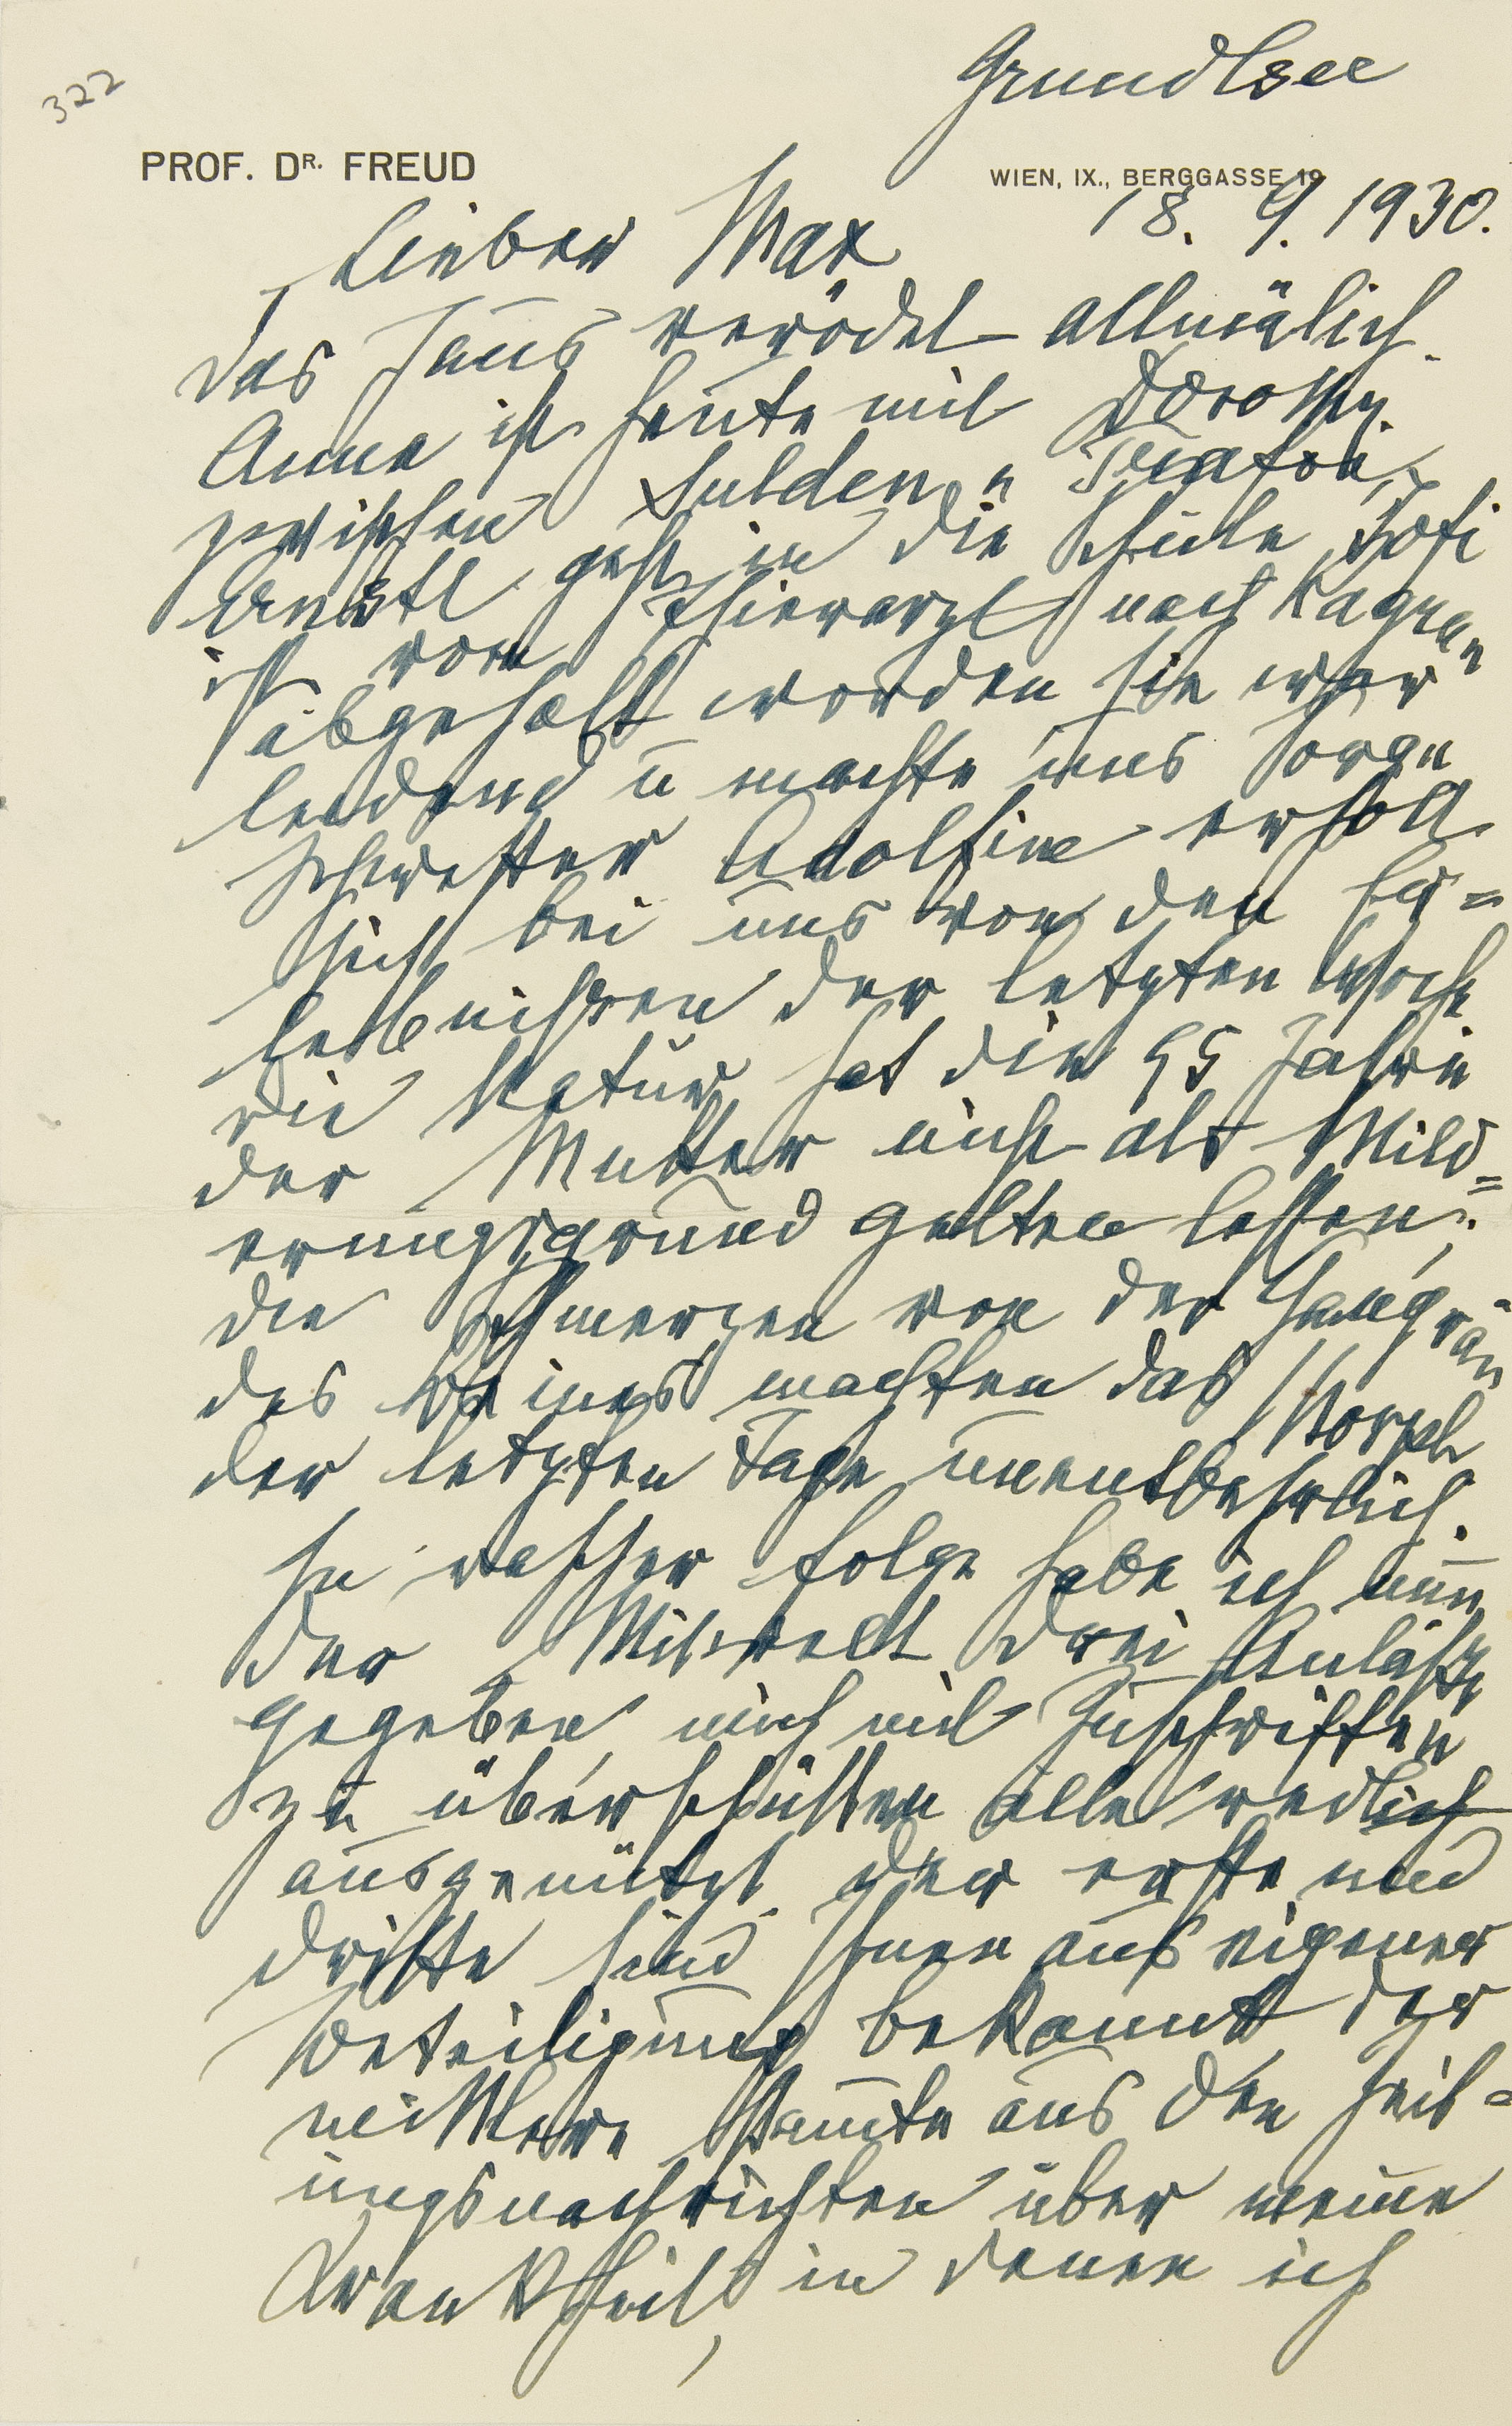 322
Grundlsee
PROF. DR. FREUD
WIEN, IX., BERGGASSE 19
18. 9. 1930.
Lieber Max
Das Haus verödet allmälich.
Anna ist heute mit Dorothy
zwischen Sulden u Trafoi,
Ernstl geht in die Schule, Jofi
ist vom Thierarzt nach Kagran
abgeholt worden sie war
leidend u machte uns Sorgen
Schwester Adolfine erholt
sich bei uns von den Er=
lebnissen der letzten Woche
Die Natur hat die 95 Jahre
der Mutter nicht als Mild=
erungsgrund gelten lassen,
die Schmerzen von der Gangrän
des Beines machten das Morph
der letzten Tage unentbehrlich.
In rascher Folge habe ich nun
der Mitwelt drei Anlässe
gegeben, mich mit Zuschriften
zu überschütten alle redlich
ausgenützt. Der erste und
dritte sind Ihnen aus eigener
Beteiligung bekannt der
mittlere stammte aus den Zeit=
ungsnachrichten über meine
Krankheit, in denen ich